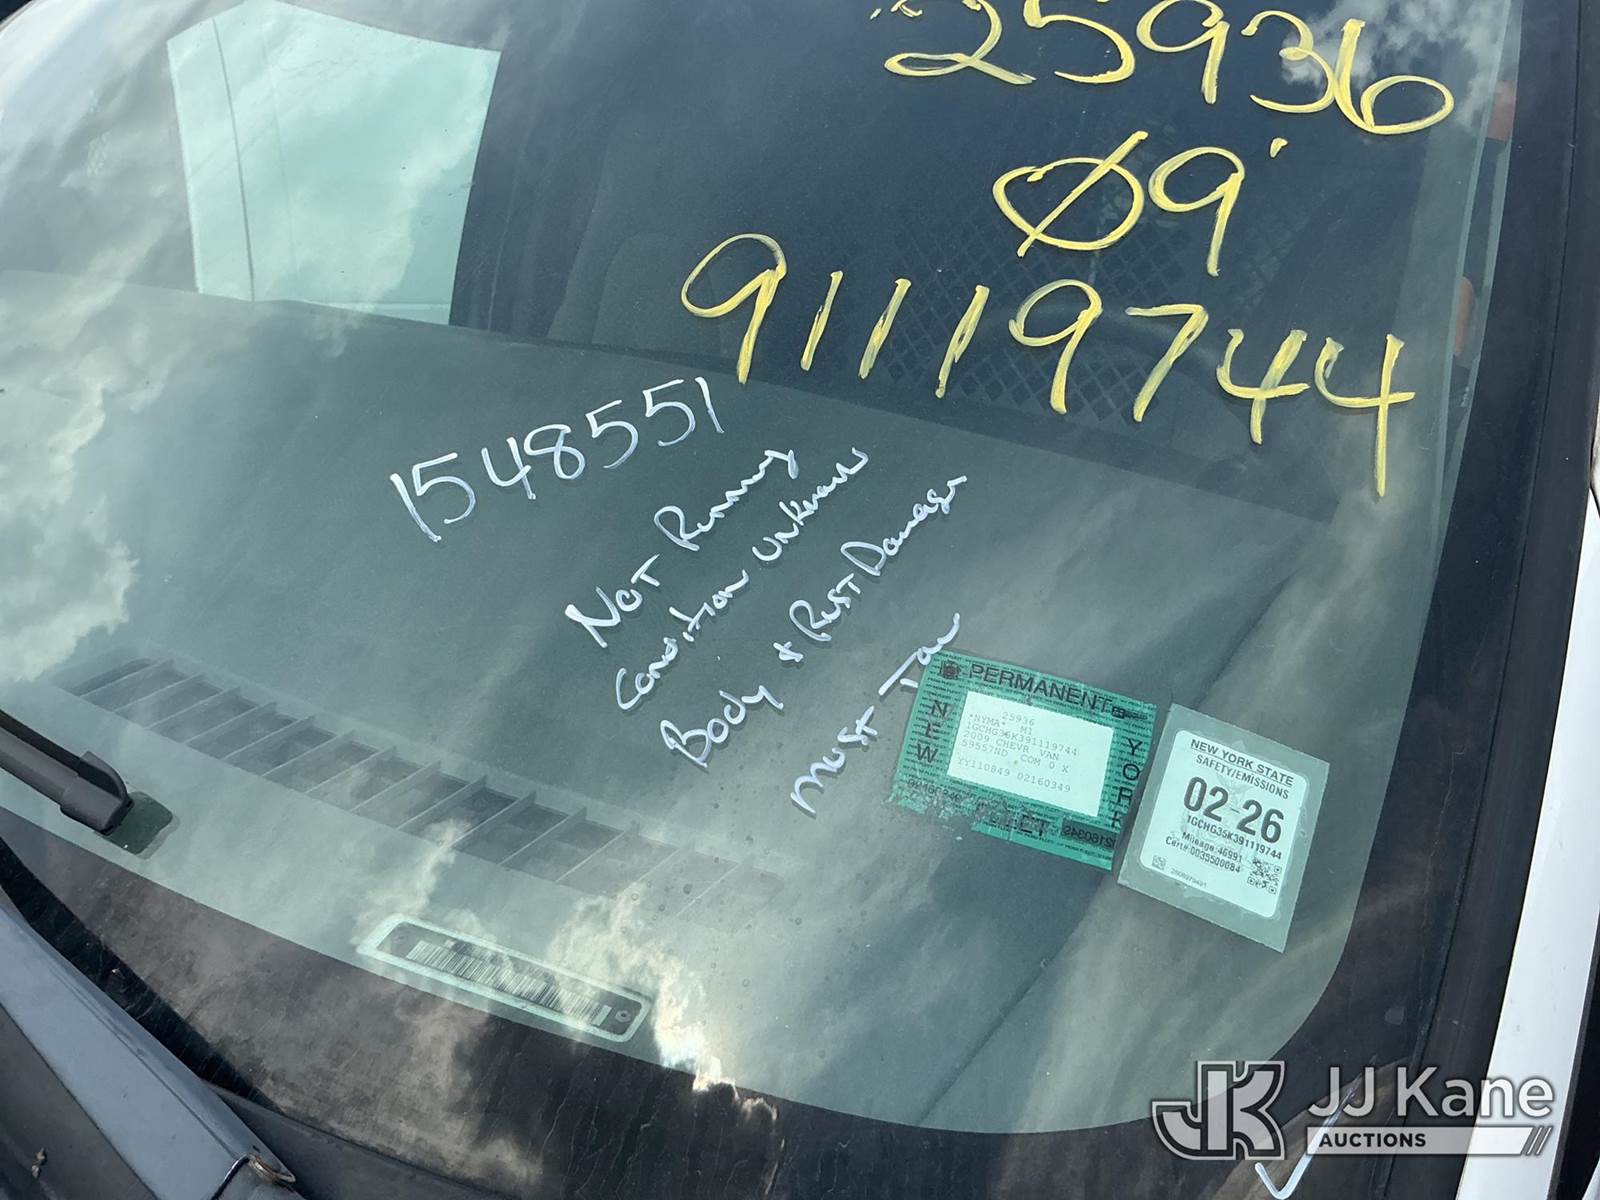 25936
09'
91119744
1548551
Not Running
Condition Unknown
Body & Rust Damage
Must Tow
PERMANENT
NEW
YORK
25936
*NYMA* M1
1GCHG35K391119744
2009 CHEVR VAN
59557ND COM 0 X
YY110849 02160349
02160349
NEW YORK STATE
SAFETY/EMISSIONS
02-26
1GCHG35K391119744
Mileage:46991
Cert#:0035500084
JK JJ Kane
AUCTIONS